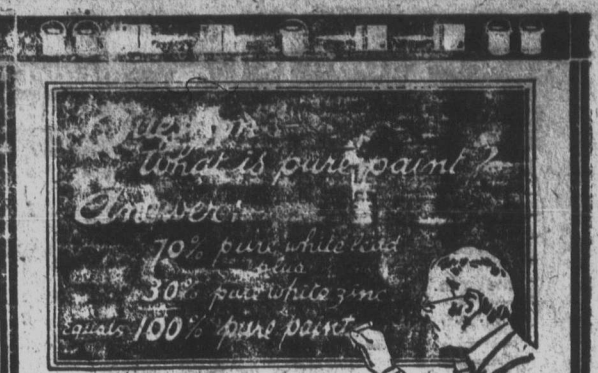 Question:-
What is pure paint?
Answer:
70% pure white lead
plus
30% pure white zinc
Equals 100% pure paint